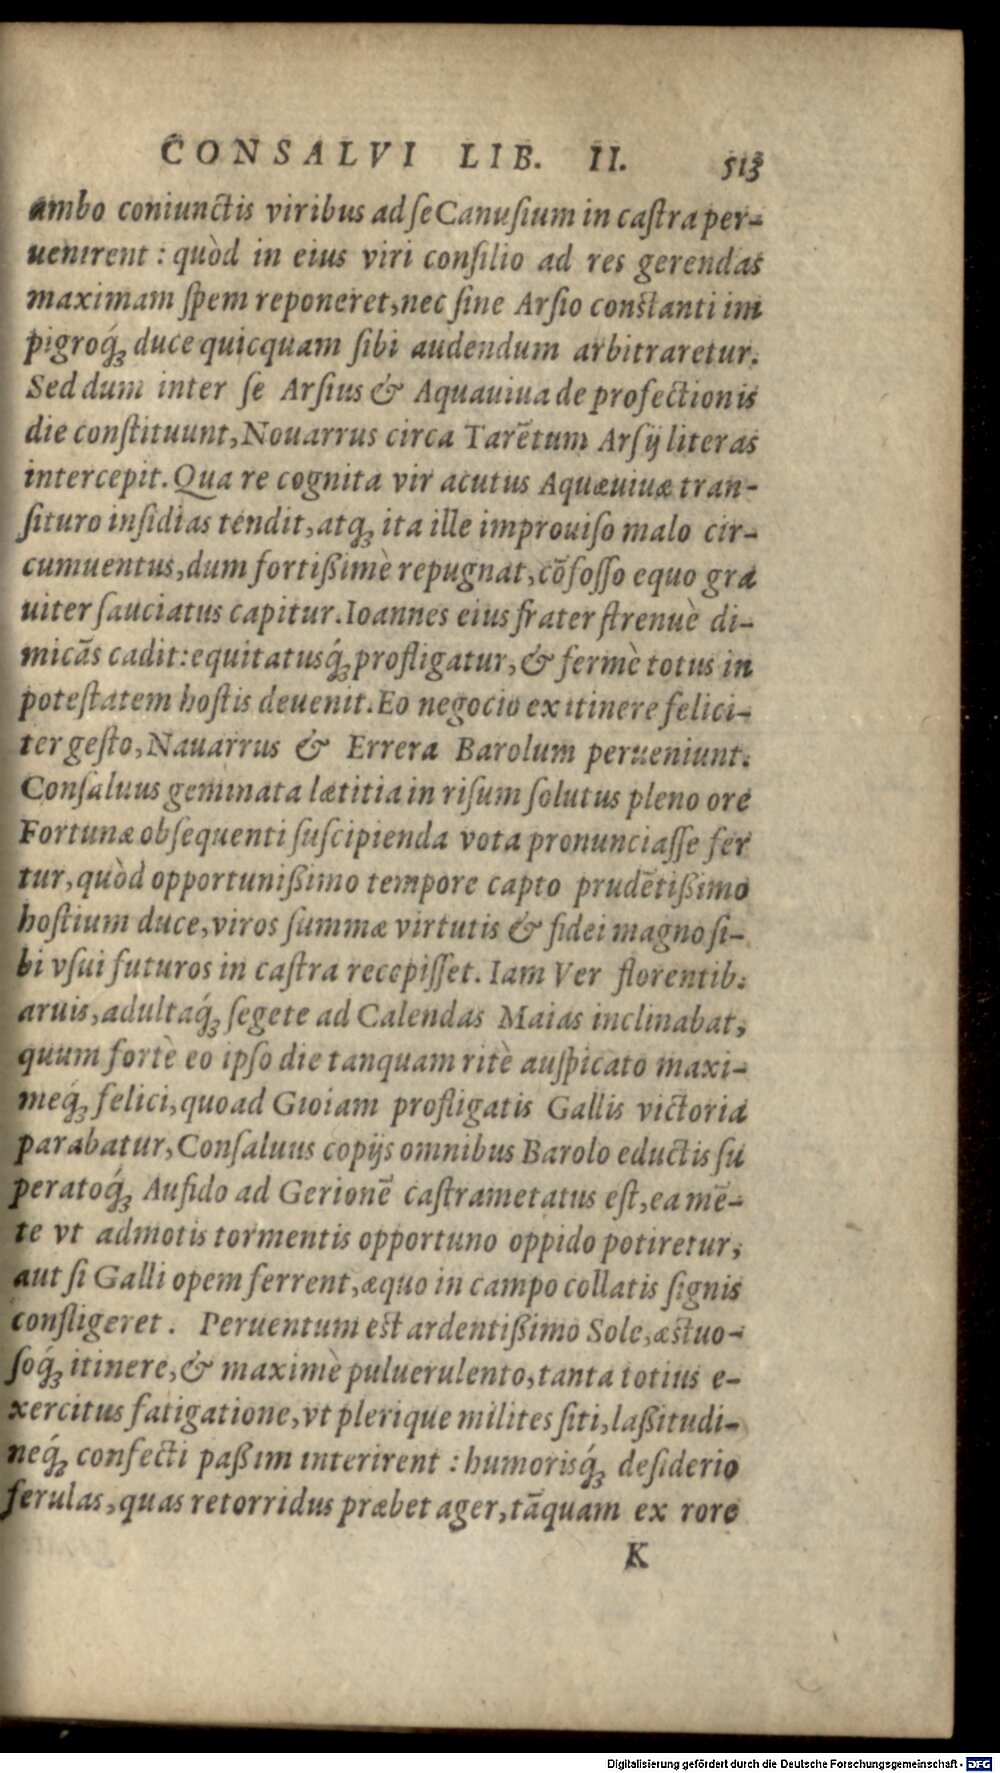 CONSALVI LIB. II. 513
ambo coniunctis viribus ad se Canusium in castra per-
uenirent : quòd in eius viri consilio ad res gerendas
maximam spem reponeret, nec sine Arsio constanti im
pigroq́ꝫ duce quicquam sibi audendum arbitraretur.
Sed dum inter se Arsius & Aquauiua de profectionis
die constituunt, Nouarrus circa Tarẽtum Arsij literas
intercepit. Qua re cognita vir acutus Aquæuiuæ tran-
situro insidias tendit, atqꝫ ita ille improuiso malo cir-
cumuentus, dum fortißimè repugnat, cõfosso equo gra
uiter sauciatus capitur. Ioannes eius frater strenuè di-
micãs cadit: equitatusq́ꝫ profligatur, & fermè totus in
potestatem hostis deuenit. Eo negocio ex itinere felici-
ter gesto, Nauarrus & Errera Barolum perueniunt.
Consaluus geminata lætitia in risum solutus pleno ore
Fortunæ obsequenti suscipienda vota pronunciasse fer
tur, quòd opportunißimo tempore capto prudẽtißimo
hostium duce, viros summæ virtutis & fidei magno si-
bi vsui futuros in castra recepisset. Iam Ver florentib.
aruis, adultaq́ꝫ segete ad Calendas Maias inclinabat,
quum fortè eo ipso die tanquam ritè auspicato maxi-
meq́ꝫ felici, quo ad Gioiam profligatis Gallis victoria
parabatur, Consaluus copijs omnibus Barolo eductis su
peratoq́ꝫ Aufido ad Gerionẽ castrametatus est, ea mẽ-
te vt admotis tormentis opportuno oppido potiretur,
aut si Galli opem ferrent, æquo in campo collatis signis
confligeret. Peruentum est ardentißimo Sole, æstuo-
soq́ꝫ itinere, & maximè puluerulento, tanta totius e-
xercitus fatigatione, vt plerique milites siti, laßitudi-
neq́ꝫ confecti paßim interirent : humorisq́ꝫ desiderio
ferulas, quas retorridus præbet ager, tãquam ex rore
K
Digitalisierung gefördert durch die Deutsche Forschungsgemeinschaft - DFG